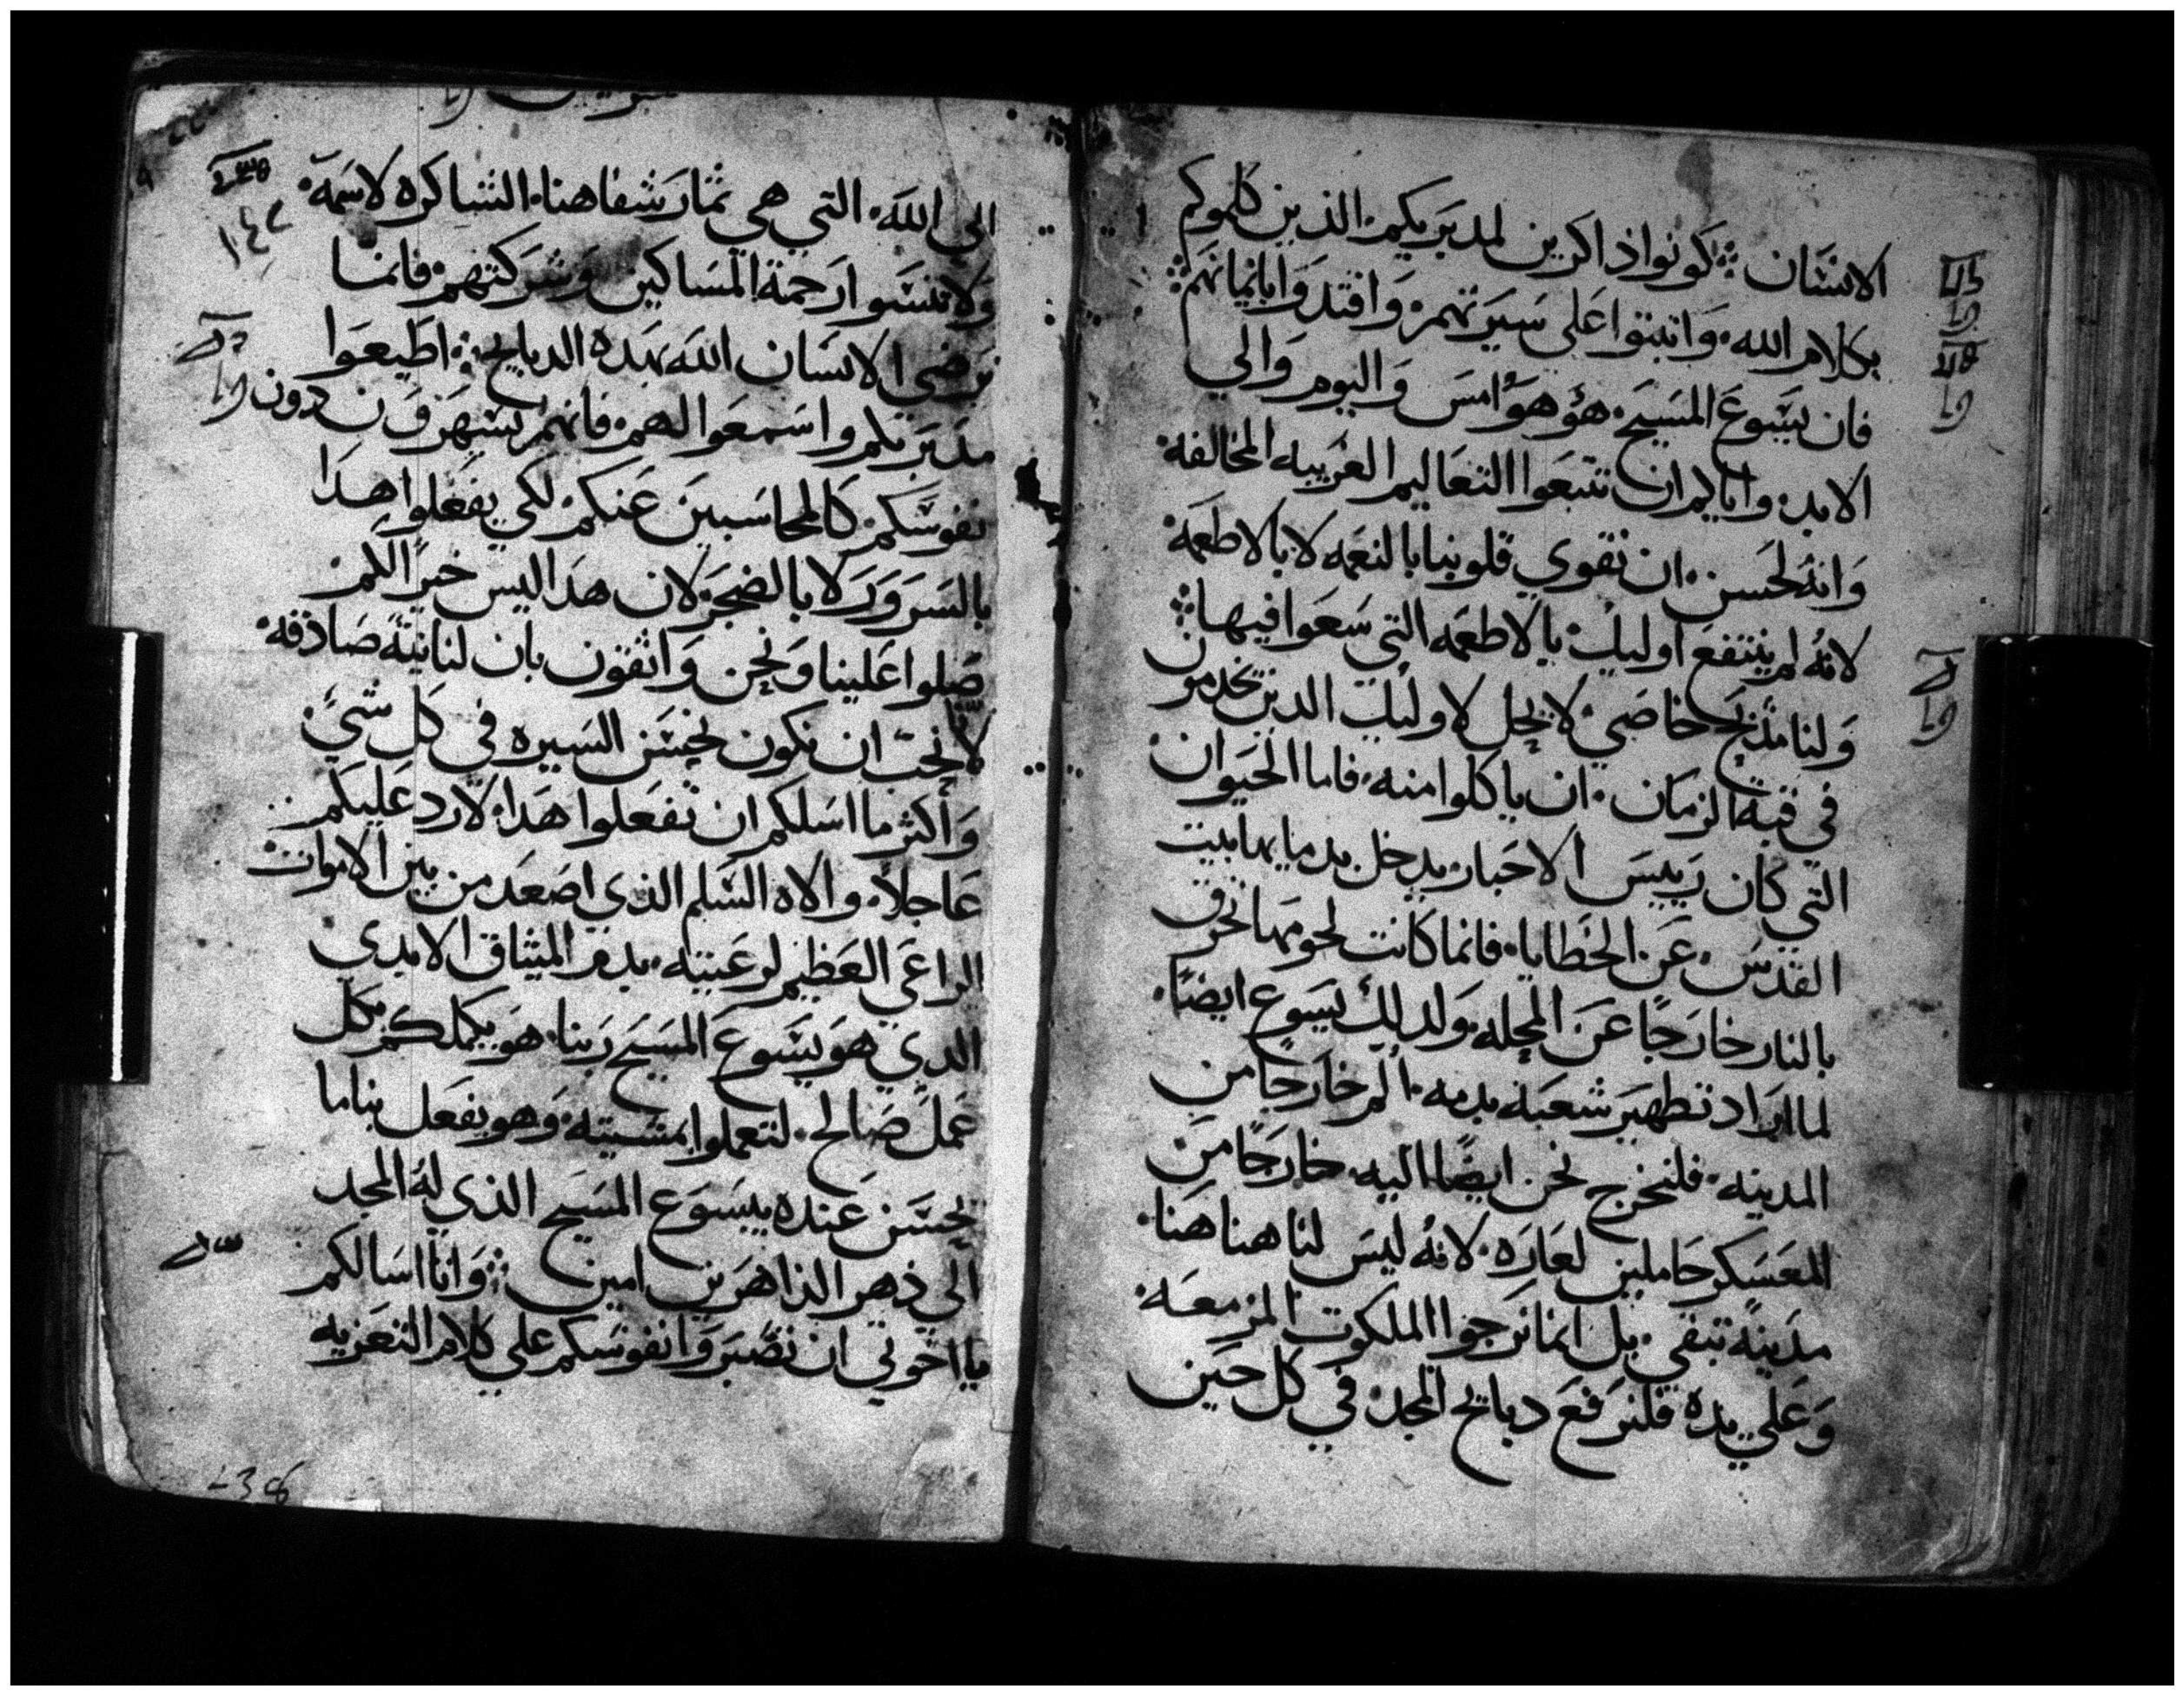 الانسان ܀ كونوا ذاكرين لمدبريكم. الذين كلموكم
بكلام الله. واثبتوا علي سيرتهم. واقتدوا بايمانهم܀
فان يسوع المسيح. هو هو امس واليوم والي
الابد. واياكم ان تتبعوا التعاليم الغريبه المخالفه.
وانه لحسن. ان نقوي قلوبنا بالنعمه لا بالاطعمه
لانه لم ينتفع اوليك بالاطعمه التي سعوا فيها܀
ولنا مذبح خاصي. لا يحل لاوليك الذين يخدمون
في قبة الزمان. ان ياكلوا منه. فاما الحيوان
التي كان رييس الاحبار يدخل بدمايها بيت
القدس. عن الخطايا. فانما كانت لحومها تحرق
بالنار خارجا عن المحله. ولذلك يسوع ايضا.
لما اراد تطهير شعبه بدمه. الم خارجا من
المدينه. فلنخرج نحن ايضا اليه خارجا من
المعسكر حاملين لعاره. لانه ليس لنا هنا هنا.
مدينة تبقي. بل انما نرجوا الملكوت المزمعه.
وعلي يده فلنرفع دبايح المجد في كل حين
الي الله. التي هي ثمار شفاهنا. الشاكره لاسمه.
١٤٢
ولا تنسوا رحمة المساكين وشركتهم. فانما
يرضي الانسان الله بهده الدبايح܀ اطيعوا
مدبريكم واسمعوا لهم. فانهم يسهرون دون
نفوسكم كالمحاسبين عنكم. لكي يفعلوا هدا
بالسرور لا بالضجر. لان هدا ليس خيرا لكم.
صلوا علينا ونحن واثقون بان لنا نية صادقه.
لانا نحب ان نكون نحسن السيره في كل شي.
واكثر ما اسلكم ان تفعلوا هدا. لارد عليكم
عاجلا. والاه السلم الذي اصعد من بين الاموات
الراعي العظيم لرعيته. بدم الميثاق الابدي
الدي هو يسوع المسيح ربنا. هو يكملكم بكل
عمل صالح. لتعملوا بمشيته. وهو يفعل بنا ما
يحسن عنده بيسوع المسيح الذي له المجد
الى ذهر الذاهرين امين܀ وانا اسالكم
يا اخوتي ان تصبروا نفوسكم علي كلام التعزيه